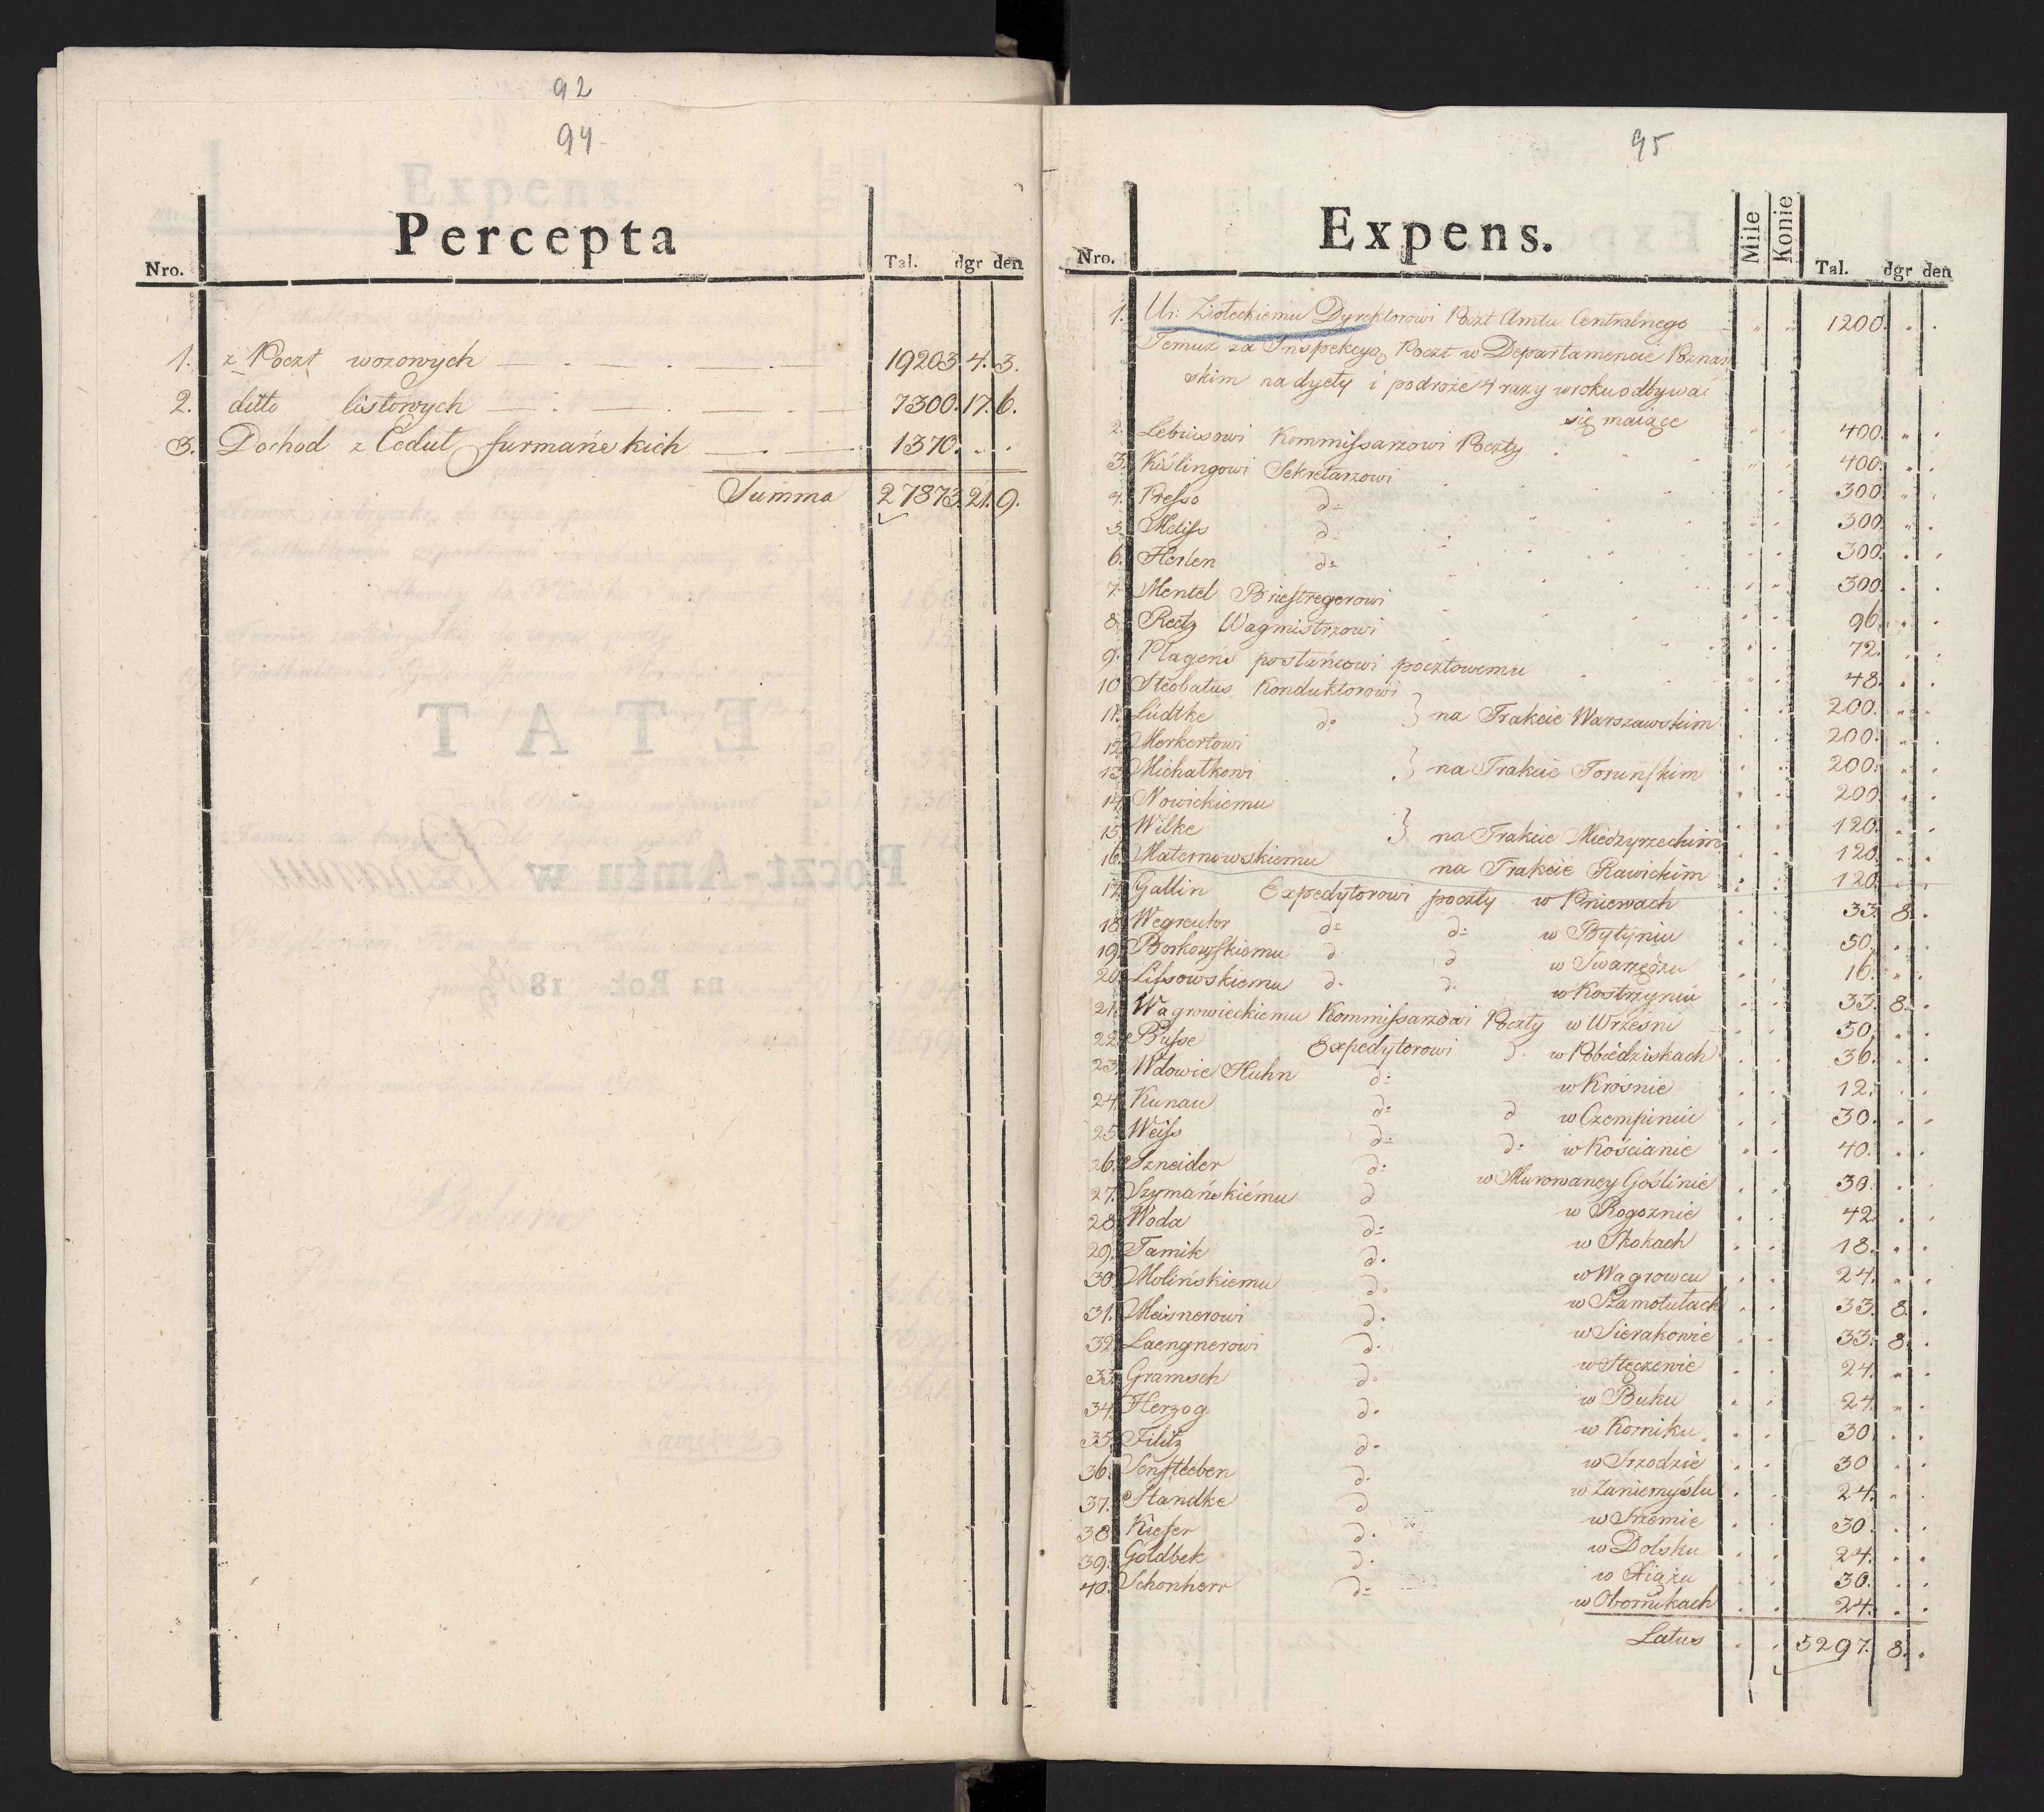 92
94
Percepta
Nro. Tal. dgr den
1. z Poczt wozowych 19203. 4. 3.
2. ditto listowych 7300. 17. 6.
3. Dochod z Cedul furmańskich 1370. . .
Summa 27873. 21. 9.
95
Expens.
Nro. Mile Konie Tal. dgr den
1. Ur: Ziołeckiemu Dyrektorowi Poczt Amtu Centralnego 1200.
Temuż za Inspekcyą Poczt w Departamencie Poznań
skim na dyety i podróże 4 razy w roku odbywać
się maiące 400.
2. Lebiusowi Kommissarzowi Poczty 400.
3. Kislingowi Sekretarzowi 300.
4. Presso d= 300.
5. Meiss d= 300.
6. Herlen d= 300.
7. Mentel Briestregerowi 96.
8. Reetz Wagmistrzowi 72.
9. Plagens posłańcowi pocztowemu 48.
10. Steobatus Konduktorowi 200.
11. Lüdtke do } na Trakcie Warszawskim 200.
12. Merkertowi 200.
13. Michatkowi } na Trakcie Toruńskim 200.
14. Nowickiemu 120.
15. Wilke } na Trakcie Miedzyrzeckim 120.
16. Maternowskiemu na Trakcie Rawickim 120.
17. Gallin Expedytorowi poczty w Pniewach 33. 8.
18. Wegreuter d= d= w Bytyniu 50.
19. Borkowskiemu d d w Swarzędzu 16.
20. Lissowskiemu d. d. w Kostrzyniu 33. 8.
21. Wagrowieckiemu Kommissarzowi Poczty w Wrzesni 50.
22. Busse Expedytorowi d. w Pobiedziskach 36.
23. Wdowie Huhn d= w Krośnie 12.
24. Kunau d= d w Czempiniu 30.
25. Weiss d= d. w Kościanie 40.
26. Szneider d= w Murowaney Goślinie 30.
27. Szymańskiému d w Rogoznie 42.
28. Woda d= w Skokach 18.
29. Tamik d. w Wagrowcu 24.
30. Molińskiemu d. w Szamotułach 33. 8.
31. Meisnerowi d. w Sierakowie 33. 8.
32. Laengnerowi d. w Stęczewie 24.
33. Gramsch d. w Buku 24.
34. Herzog d. w Korniku 30.
35. Filitz d. w Srzodzie 30.
36. Senftleben d. w Zaniemyślu 24.
37. Standke d w Srzemie 30.
38. Kiefer d. w Dolsku 24.
39. Goldbek d. w Xiążu 30.
40. Schonherr d= w Obornikach 24.
Latus 5297. 8.